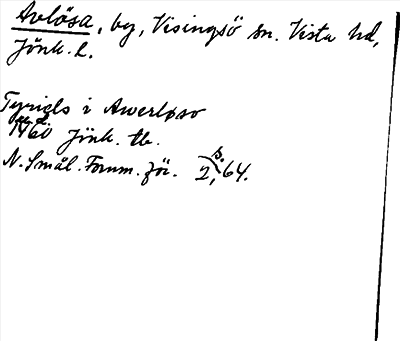 Avlösa, by, Visingsö sn. Vista hd,
Jönk. l.
Tyricls i Awerløso
1460 Jönk. tb.
N. Smål. Forum. för. 2, s. 64.